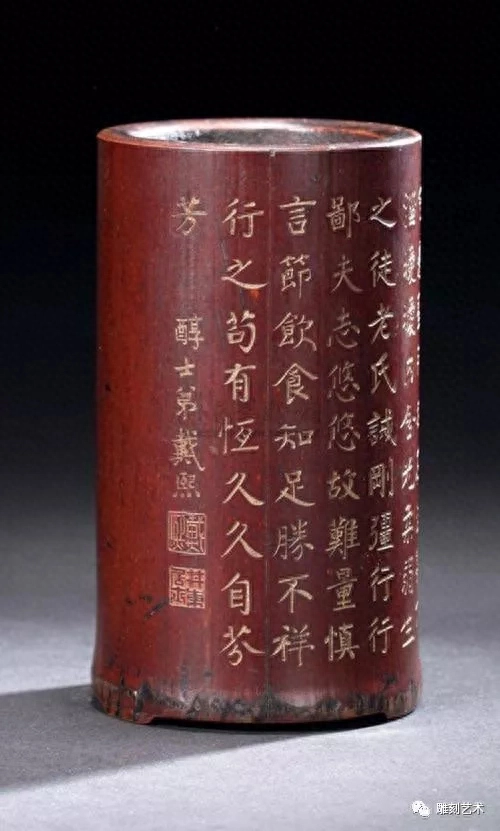 淄曖曖内含光柔弱生
之徒老氏誡剛彊行行
鄙夫志悠悠故難量慎
言節飲食知足勝不祥
行之苟有恆久久自芬
芳
醇士弟戴熙
雕刻艺术